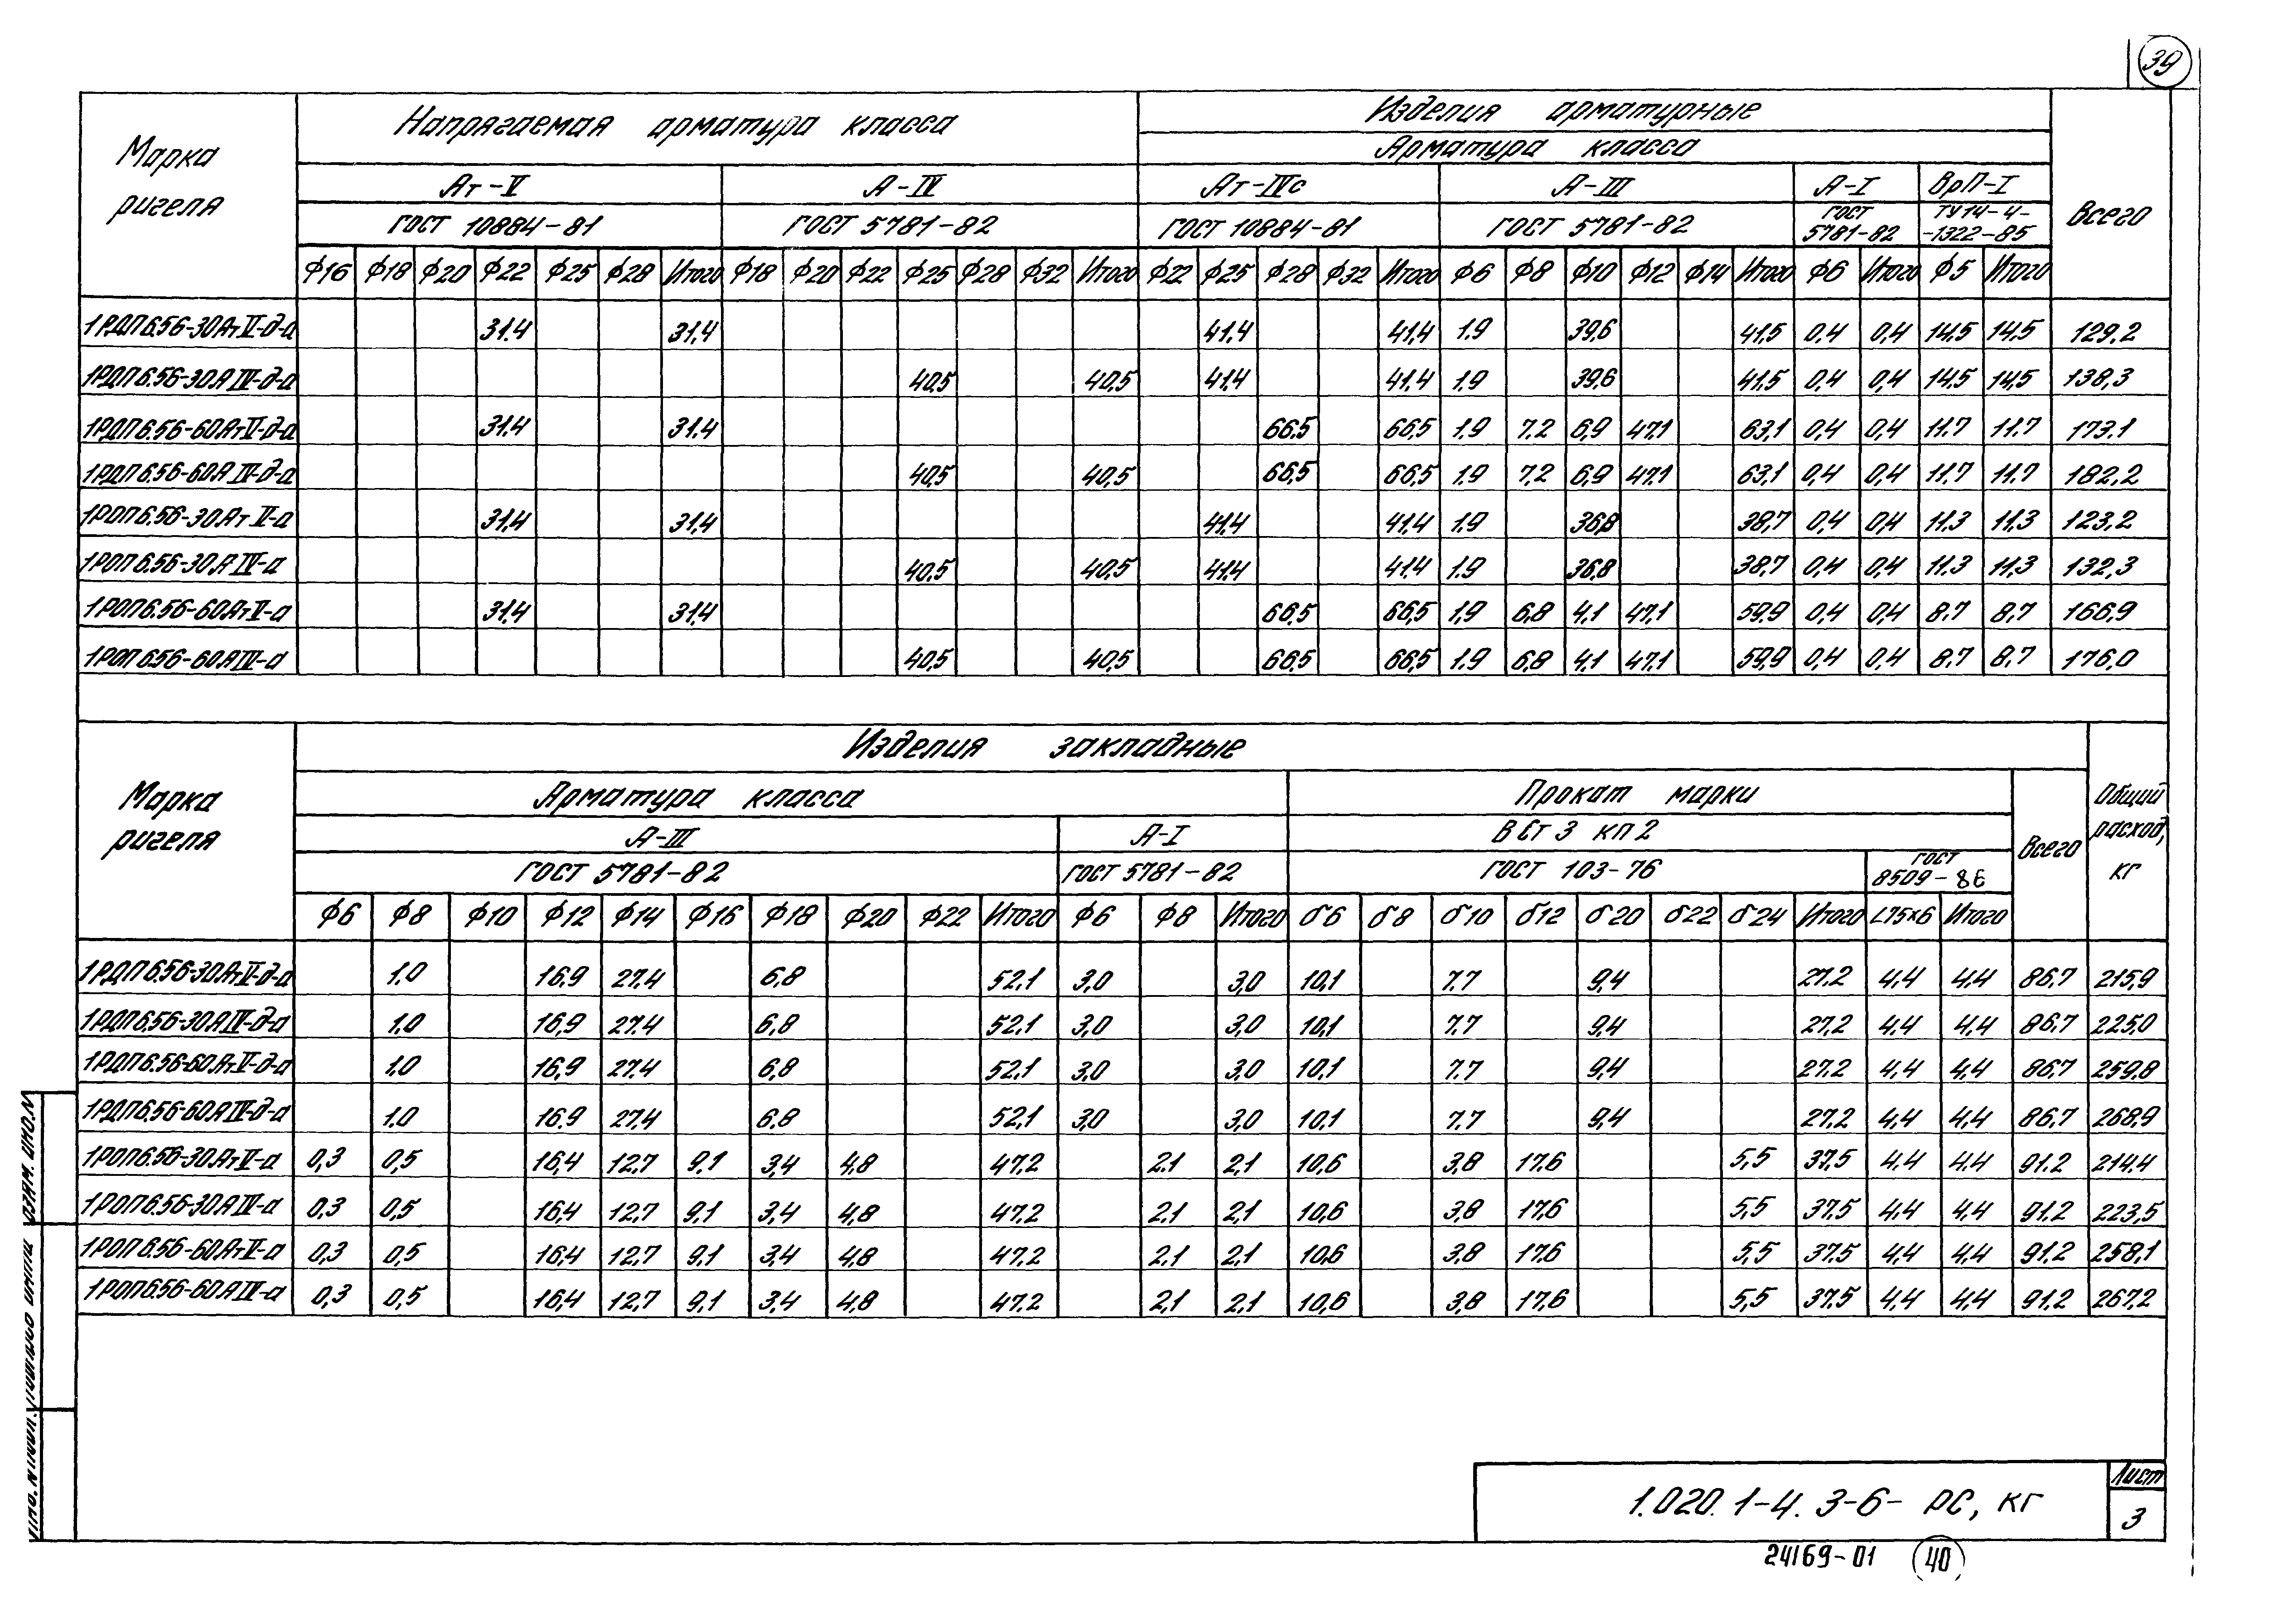 39
Марка ригеля | Напрягаемая арматура класса | Изделия арматурные | Всего
Арматура класса
Ат-V | А-IV | Ат-IVс | А-III | А-I | ВрП-I
ГОСТ 10884-81 | ГОСТ 5781-82 | ГОСТ 10884-81 | ГОСТ 5781-82 | ГОСТ 5781-82 | ТУ14-4-1322-85
ф16 ф18 ф20 ф22 ф25 ф28 Итого ф18 ф20 ф22 ф25 ф28 ф32 Итого ф22 ф25 ф28 ф32 Итого ф6 ф8 ф10 ф12 ф14 Итого ф6 Итого ф5 Итого
1РДП6.56-30АтV-д-а 31.4 31,4 41,4 41,4 1.9 39,6 41,5 0,4 0,4 14,5 14,5 129,2
1РДП6.56-30АIV-д-а 40,5 40,5 41.4 41.4 1.9 39,6 41.5 0,4 0,4 14,5 14,5 138,3
1РДП6.56-60АтV-д-а 31.4 31.4 66.5 66,5 1.9 7.2 6,9 47.1 63,1 0,4 0,4 11.7 11.7 173.1
1РДП6.56-60АIV-д-а 40,5 40,5 66,5 66,5 1.9 7,2 6,9 47.1 63,1 0,4 0,4 11.7 11.7 182,2
1РОП6.56-30АтV-а 31.4 31,4 41.4 41.4 1.9 36,8 38,7 0,4 0,4 11.3 11.3 123.2
1РОП6.56-30АIV-а 40,5 40,5 41.4 41.4 1.9 36,8 38,7 0,4 0,4 11.3 11.3 132,3
1РОП6.56-60АтV-а 31.4 31.4 66,5 66,5 1,9 6,8 4.1 47.1 59,9 0,4 0,4 8.7 8.7 166,9
1РОП6.56-60АIV-а 40,5 40,5 66,5 66,5 1.9 6,8 4.1 47.1 59,9 0,4 0,4 8.7 8.7 176.0
Марка ригеля | Изделия закладные | Общий расход, кг
Арматура класса | Прокат марки | Всего
А-III | А-I | ВСт 3 кп 2
ГОСТ 5781-82 | ГОСТ 5781-82 | ГОСТ 103-76 | ГОСТ 8509-86
ф6 ф8 ф10 ф12 ф14 ф16 ф18 ф20 ф22 Итого ф6 ф8 Итого б6 б8 б10 б12 б20 б22 б24 Итого L75×6 Итого
1РДП6.56-30АтV-д-а 1.0 16,9 27.4 6,8 52.1 3,0 3,0 10,1 7.7 9,4 27.2 4,4 4,4 86.7 215,9
1РДП6.56-30АIV-д-а 1,0 16,9 27.4 6,8 52.1 3,0 3,0 10,1 7.7 9,4 27,2 4,4 4,4 86.7 225,0
1РДП6.56-60АтV-д-а 1.0 16,9 27.4 6,8 52.1 3,0 3,0 10,1 7.7 9,4 27.2 4,4 4,4 86.7 259,8
1РДП6.56-60АIV-д-а 1.0 16.9 27.4 6.8 52,1 3,0 3,0 10.1 7.7 9,4 27,2 4,4 4,4 86,7 268,9
1РОП6.56-30АтV-а 0,3 0,5 16,4 12.7 9,1 3,4 4,8 47.2 2.1 2,1 10,6 3,8 17.6 5,5 37.5 4,4 4,4 91.2 214,4
1РОП6.56-30АIV-а 0,3 0,5 16,4 12,7 9,1 3,4 4,8 47.2 2.1 2,1 10,6 3,8 17,6 5,5 37.5 4,4 4,4 91.2 223,5
1РОП6.56-60АтV-а 0,3 0,5 16,4 12.7 9,1 3,4 4,8 47.2 2.1 2.1 10,6 3,8 17.6 5,5 37.5 4,4 4,4 91,2 258,1
1РОП6.56-60АIV-а 0,3 0,5 16,4 12.7 9,1 3,4 4,8 47.2 2,1 2.1 10,6 3,8 17.6 5,5 37.5 4,4 4,4 91.2 267,2
1.020.1-4.3-6-РС, кг
Лист
3
24169-01
40